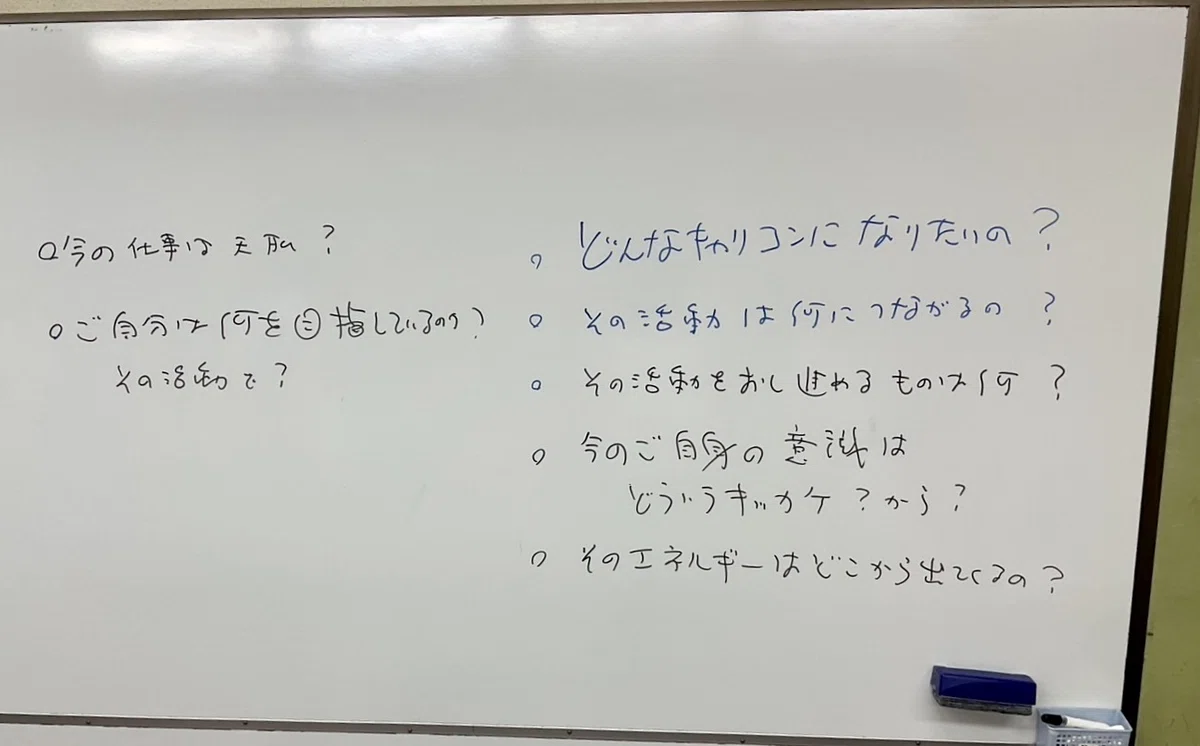 ○ 今の仕事は天職？
○ ご自分は何を目指しているの？
その活動で？
○ どんなキャリコンになりたいの？
○ その活動は何につながるの？
○ その活動をおし進めるものは何？
○ 今のご自身の意識は
どういうキッカケ？から？
○ そのエネルギーはどこから出てくるの？